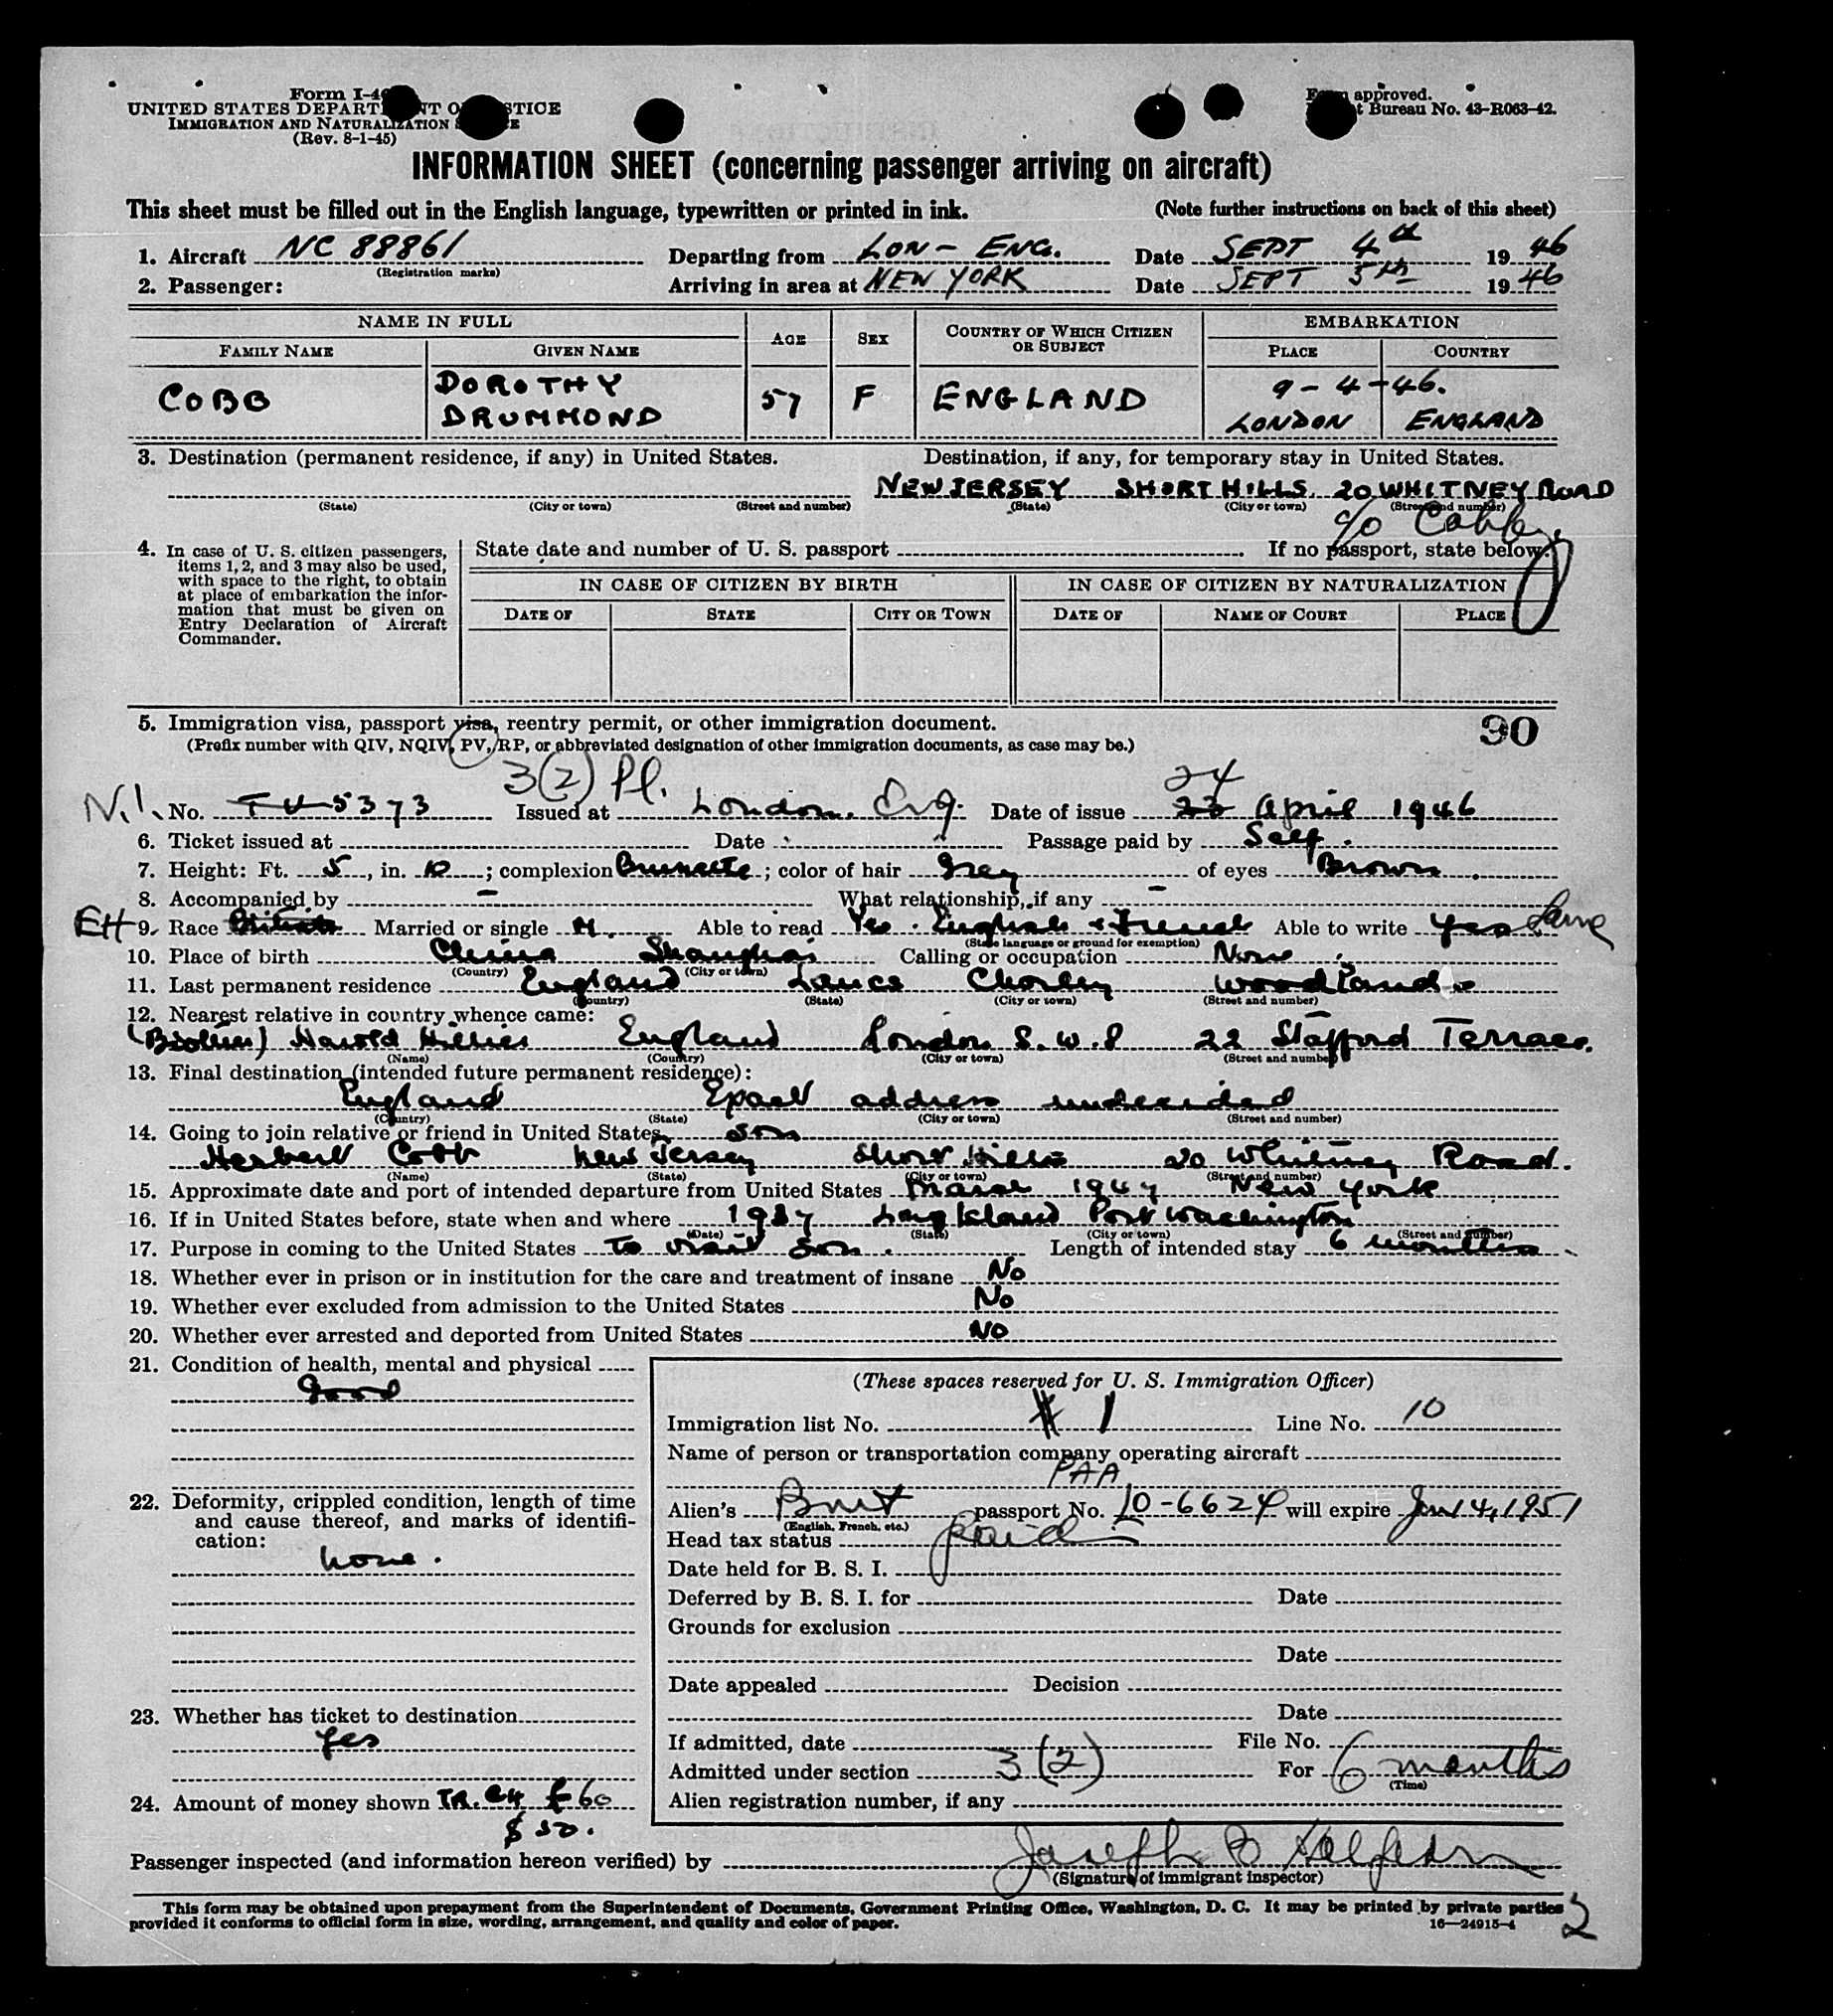 Form I-4
UNITED STATES DEPARTMENT OF JUSTICE
IMMIGRATION AND NATURALIZATION SERVICE
(Rev. 8-1-45)
Form approved.
Budget Bureau No. 43-R063-42.
INFORMATION SHEET (concerning passenger arriving on aircraft)
This sheet must be filled out in the English language, typewritten or printed in ink. (Note further instructions on back of this sheet)
1. Aircraft NC 88861 Departing from LON- ENG. Date SEPT 4th 19 46
(Registration marks)
2. Passenger: Arriving in area at NEW YORK Date SEPT 5th 19 46
NAME IN FULL AGE SEX COUNTRY OF WHICH CITIZEN OR SUBJECT EMBARKATION
FAMILY NAME GIVEN NAME PLACE COUNTRY
COBB DOROTHY DRUMMOND 57 F ENGLAND 9-4-46. LONDON ENGLAND
3. Destination (permanent residence, if any) in United States. Destination, if any, for temporary stay in United States.
NEW JERSEY SHORT HILLS. 20 WHITNEY ROAD
(State) (City or town) (Street and number) (State) (City or town) (Street and number)
c/o
4. In case of U. S. citizen passengers, items 1, 2, and 3 may also be used, with space to the right, to obtain at place of embarkation the information that must be given on Entry Declaration of Aircraft Commander.
State date and number of U. S. passport If no passport, state below:
IN CASE OF CITIZEN BY BIRTH IN CASE OF CITIZEN BY NATURALIZATION
DATE OF STATE CITY OR TOWN DATE OF NAME OF COURT PLACE
5. Immigration visa, passport visa, reentry permit, or other immigration document. 90
(Prefix number with QIV, NQIV, PV, RP, or abbreviated designation of other immigration documents, as case may be.)
3(2) Pl. 24
N.I. No. TU 5373 Issued at London. Eng. Date of issue 23 April 1946
6. Ticket issued at Date Passage paid by Self.
7. Height: Ft. 5, in. 10; complexion Brunette; color of hair Grey of eyes Brown.
8. Accompanied by - What relationship, if any -
EH 9. Race British Married or single M. Able to read Yes. English & French Able to write Yes. Same
(State language or ground for exemption)
10. Place of birth China Shanghai Calling or occupation None
(Country) (City or town)
11. Last permanent residence England Lancs Chorley Woodlands
(Country) (State) (City or town) (Street and number)
12. Nearest relative in country whence came:
(Brother) Harold Hillier England London S.W.8 22 Stafford Terrace.
(Name) (Country) (City or town) (Street and number)
13. Final destination (intended future permanent residence):
England Exact address undecided
(Country) (State) (City or town) (Street and number)
14. Going to join relative or friend in United States. Son
Herbert Cobb New Jersey Short Hills 20 Whitney Road.
(Name) (State) (City or town) (Street and number)
15. Approximate date and port of intended departure from United States March 1947 New York
16. If in United States before, state when and where 1937 Long Island Port Washington
(Date) (State) (City or town) (Street and number)
17. Purpose in coming to the United States To visit son. Length of intended stay 6 months
18. Whether ever in prison or in institution for the care and treatment of insane No
19. Whether ever excluded from admission to the United States No
20. Whether ever arrested and deported from United States No
21. Condition of health, mental and physical
Good
22. Deformity, crippled condition, length of time and cause thereof, and marks of identification:
None.
23. Whether has ticket to destination
Yes
24. Amount of money shown TR. CH £60
$50.
(These spaces reserved for U. S. Immigration Officer)
Immigration list No. 1 Line No. 10
Name of person or transportation company operating aircraft
PAA
Alien's Brit passport No. 10-6624 will expire Jan 14, 1951
(English, French, etc.)
Head tax status Paid
Date held for B. S. I.
Deferred by B. S. I. for Date
Grounds for exclusion
Date
Date appealed Decision
Date
If admitted, date File No.
Admitted under section 3(2) For 6 months
(Time)
Alien registration number, if any
Passenger inspected (and information hereon verified) by Joseph B
(Signature of immigrant inspector)
This form may be obtained upon prepayment from the Superintendent of Documents, Government Printing Office, Washington, D. C. It may be printed by private parties
provided it conforms to official form in size, wording, arrangement, and quality and color of paper. 16—24915-4
2